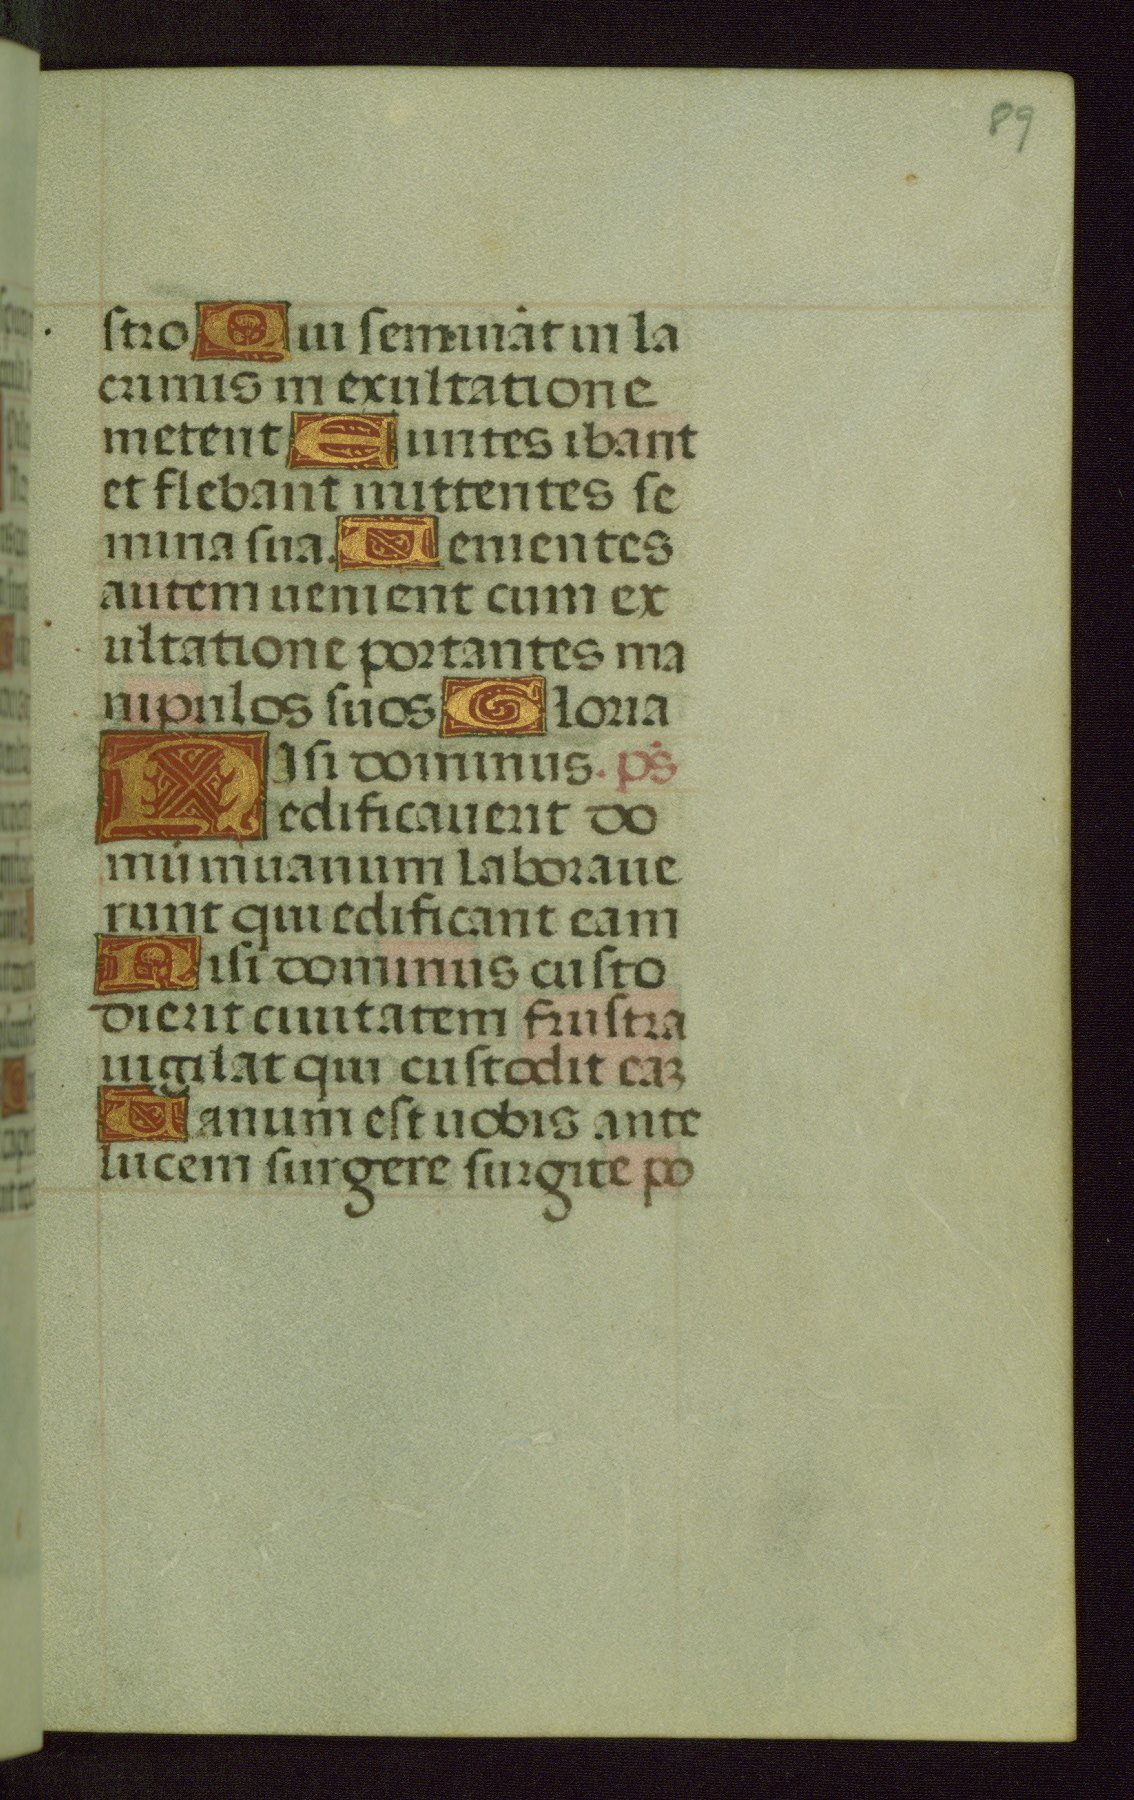 89
stro Qui semināt in la
crimis in exultatione
metent Euntes ibant
et flebant mittentes se
mina sua. Uenientes
autem uenient cum ex
ultatione portantes ma
nipulos suos Gloria
Nisi dominus. ps̄
edificauerit do
mū inuanum laboraue
runt qui edificant eam
Nisi dominus custo
dierit ciuitatem frustra
uigilat qui custodit eaꝫ
Uanum est uobis ante
lucem surgere surgite po